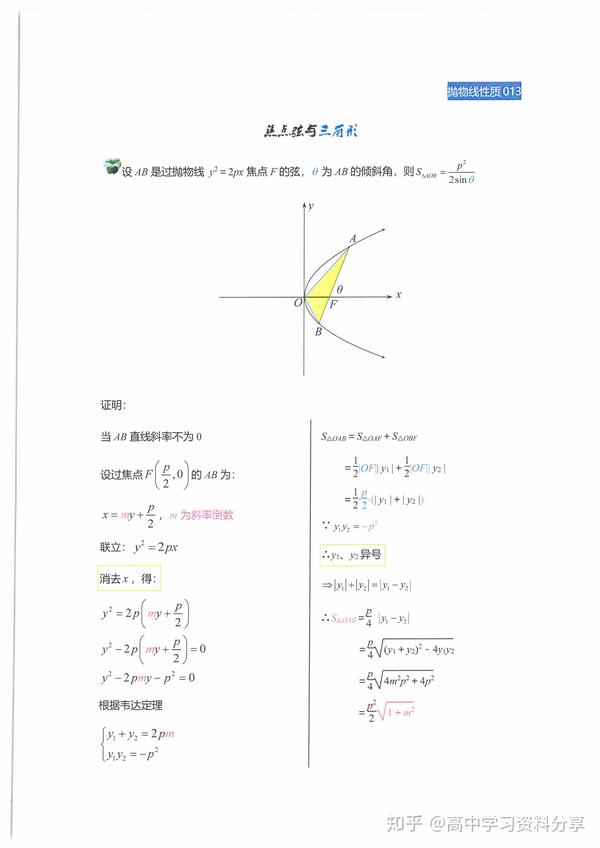 抛物线性质 013
焦点弦与三角形
设 AB 是过抛物线 y² = 2px 焦点 F 的弦，θ 为 AB 的倾斜角，则 S△AOB = p²/(2sinθ)
y
A
θ
O
F
x
B
证明：
当 AB 直线斜率不为 0
设过焦点 F(p/2, 0) 的 AB 为：
x = my + p/2，m 为斜率倒数
联立：y² = 2px
消去 x，得：
y² = 2p(my + p/2)
y² − 2p(my + p/2) = 0
y² − 2pmy − p² = 0
根据韦达定理
{y₁ + y₂ = 2pm
y₁y₂ = −p²
S△OAB = S△OAF + S△OBF
= 1/2|OF|| y₁ | + 1/2|OF|| y₂ |
= 1/2 · p/2 · (| y₁ | + | y₂ |)
∵ y₁y₂ = −p²
∴y₁、y₂ 异号
⇒ |y₁| + |y₂| = |y₁ − y₂|
∴ S△OAB = p/4 |y₁ − y₂|
= p/4 √((y₁ + y₂)² − 4y₁y₂)
= p/4 √(4m²p² + 4p²)
= p²/2 √(1 + m²)
知乎 @高中学习资料分享